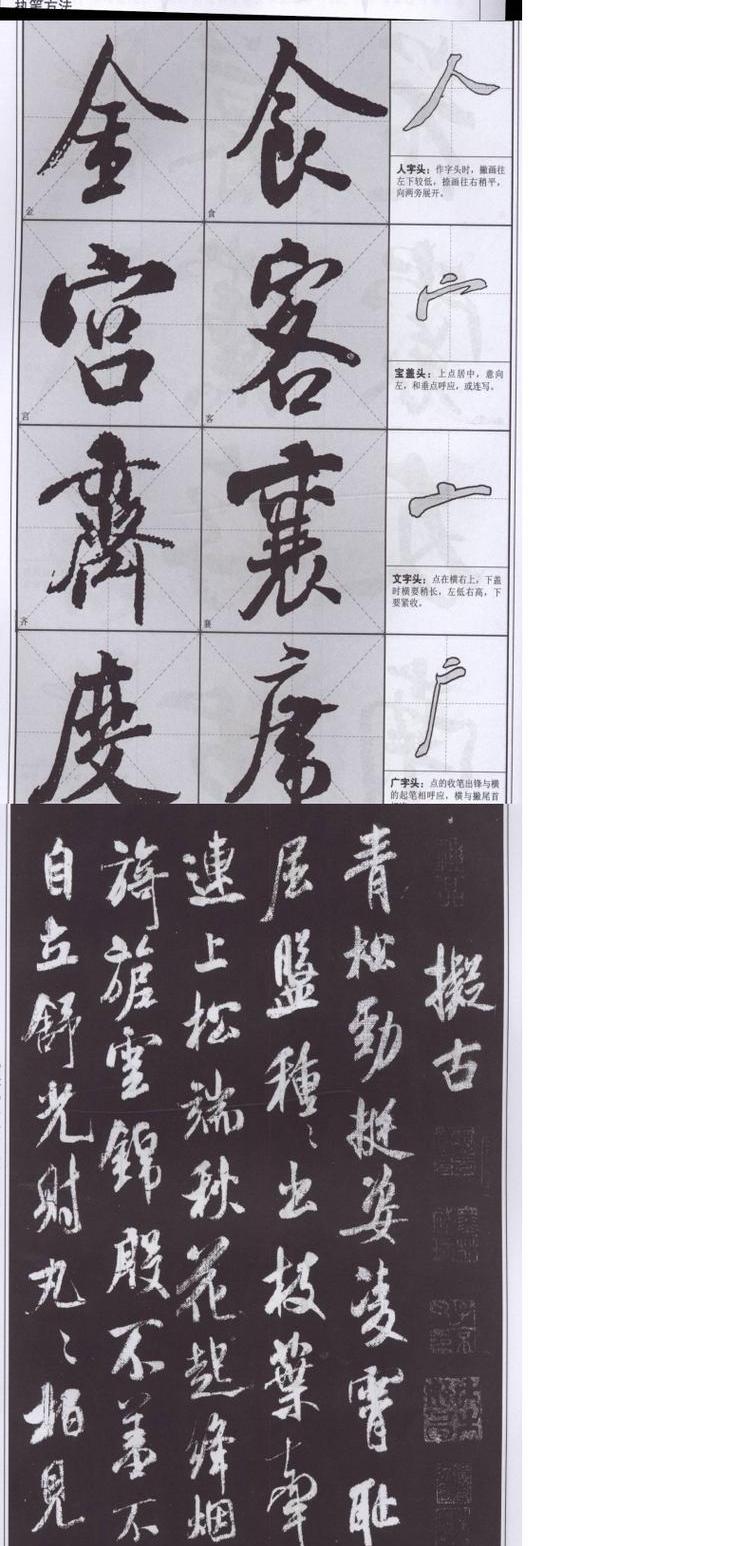 执笔方法
金 食
人字头：作字头时，撇画往
左下较低，捺画往右稍平，
向两旁展开。
金 食
宫 客
宝盖头：上点居中，意向
左，和垂点呼应，或连写。
宫 客
齊 襄
文字头：点在横右上，下盖
时横要稍长，左低右高，下
要紧收。
齐 襄
度 席
广字头：点的收笔出锋与横
的起笔相呼应，横与撇尾首
擬古
青松勁挺姿凌霄恥
屈盤種〻出枝葉牽
連上松端秋花起絳烟
旖旎雲錦殷不羞不
自立舒光射丸〻柏見